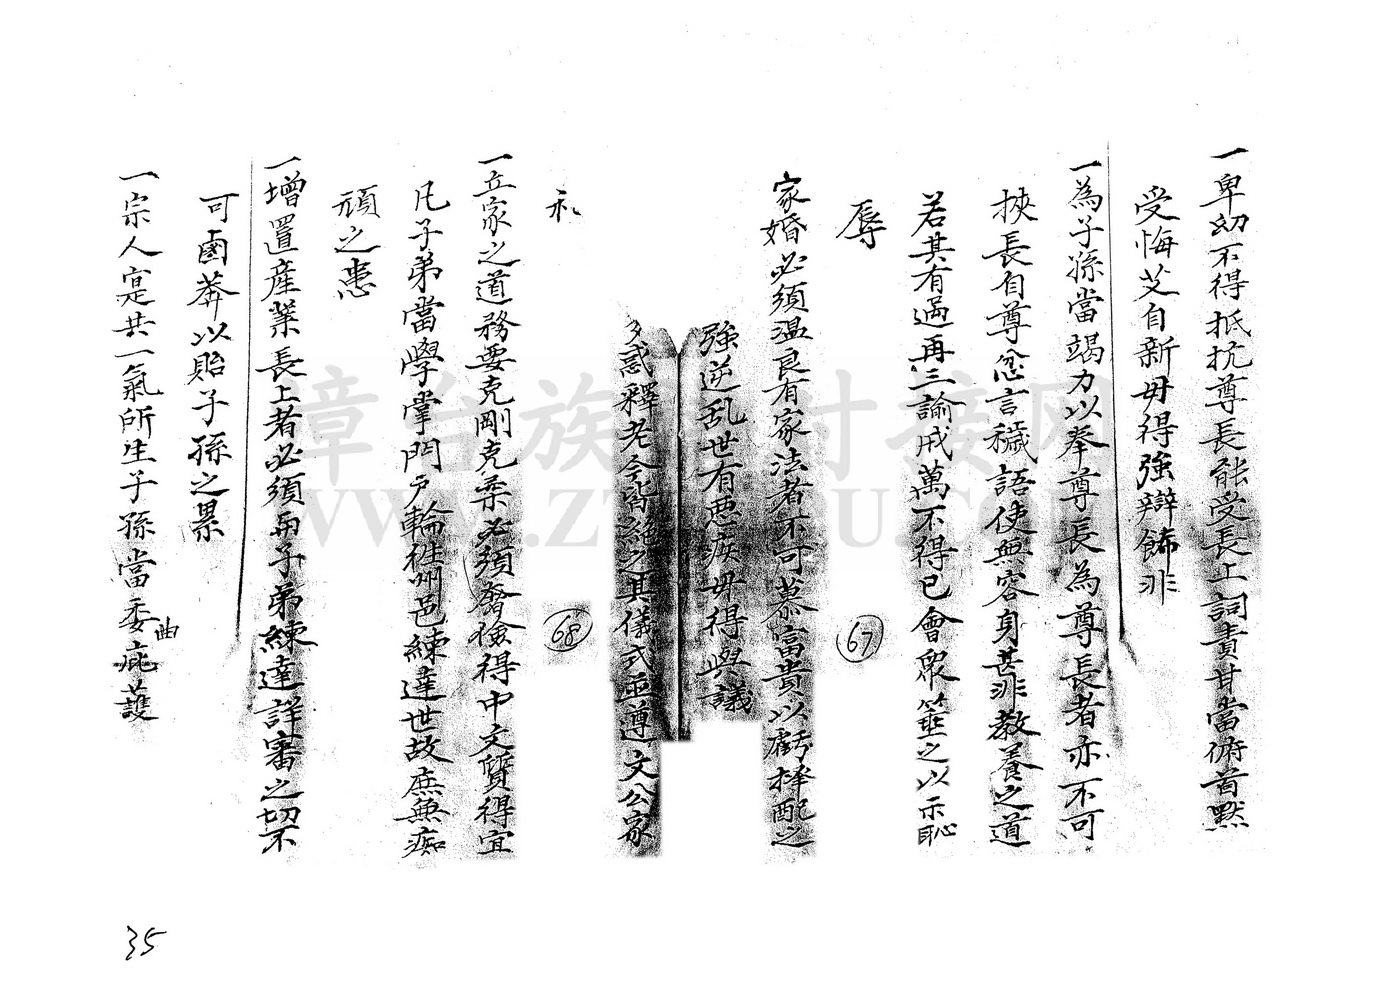 一卑幼不得抵抗尊長能受長上訶責甘當俯首默
受悔艾自新毋得強辯飾非
一為子孫當竭力以奉尊長為尊長者亦不可
挾長自尊忿言穢語使無容身甚非教養之道
若其有過再三諭戒萬不得已會眾箠之以示恥
辱
67
家婚必須温良有家法者不可慕富貴以虧擇配之
強逆乱世有悪疾毋得與議
惑釋老今皆絕之其儀式並遵文公家
68
礼
一立家之道務要克剛克柔必須奢儉得中文質得宜
凡子弟當學掌門戶輪徃州邑練達世故庶無痴
頑之患
一增置產業長上者必須與子弟練達詳審之切不
可鹵莽以貽子孫之累
一宗人寔共一氣所生子孫當委曲庇護
35
章台族譜对接网